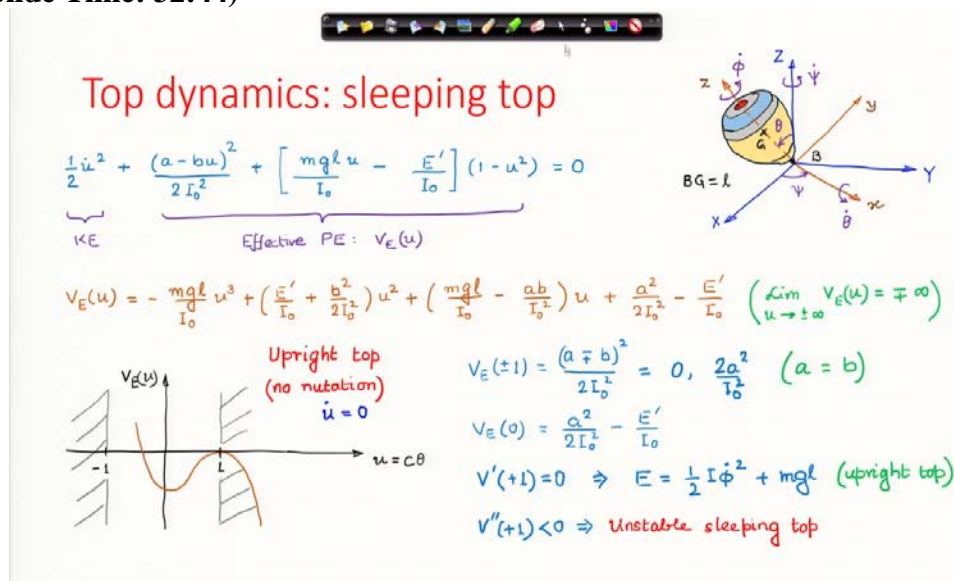 Top dynamics: sleeping top
½ u̇² + (a - bu)² / 2I₀² + [ mglu / I₀ - E′ / I₀ ] (1 - u²) = 0
KE
Effective PE: V_E(u)
V_E(u) = - mgl/I₀ u³ + ( E′/I₀ + b²/2I₀² ) u² + ( mgl/I₀ - ab/I₀² ) u + a²/2I₀² - E′/I₀ ( Lim u→±∞ V_E(u) = ∓∞ )
Upright top
(no nutation)
u̇ = 0
V_E(u)
-1
1
u = cθ
V_E(±1) = (a ∓ b)² / 2I₀² = 0, 2a²/I₀² (a = b)
V_E(0) = a²/2I₀² - E′/I₀
V′(+1) = 0 ⇒ E = ½ I φ̇² + mgl (upright top)
V″(+1) < 0 ⇒ Unstable sleeping top
z
φ̇
Z
ψ̇
y
θ
G
B
BG = l
Y
ψ
X
x
θ̇